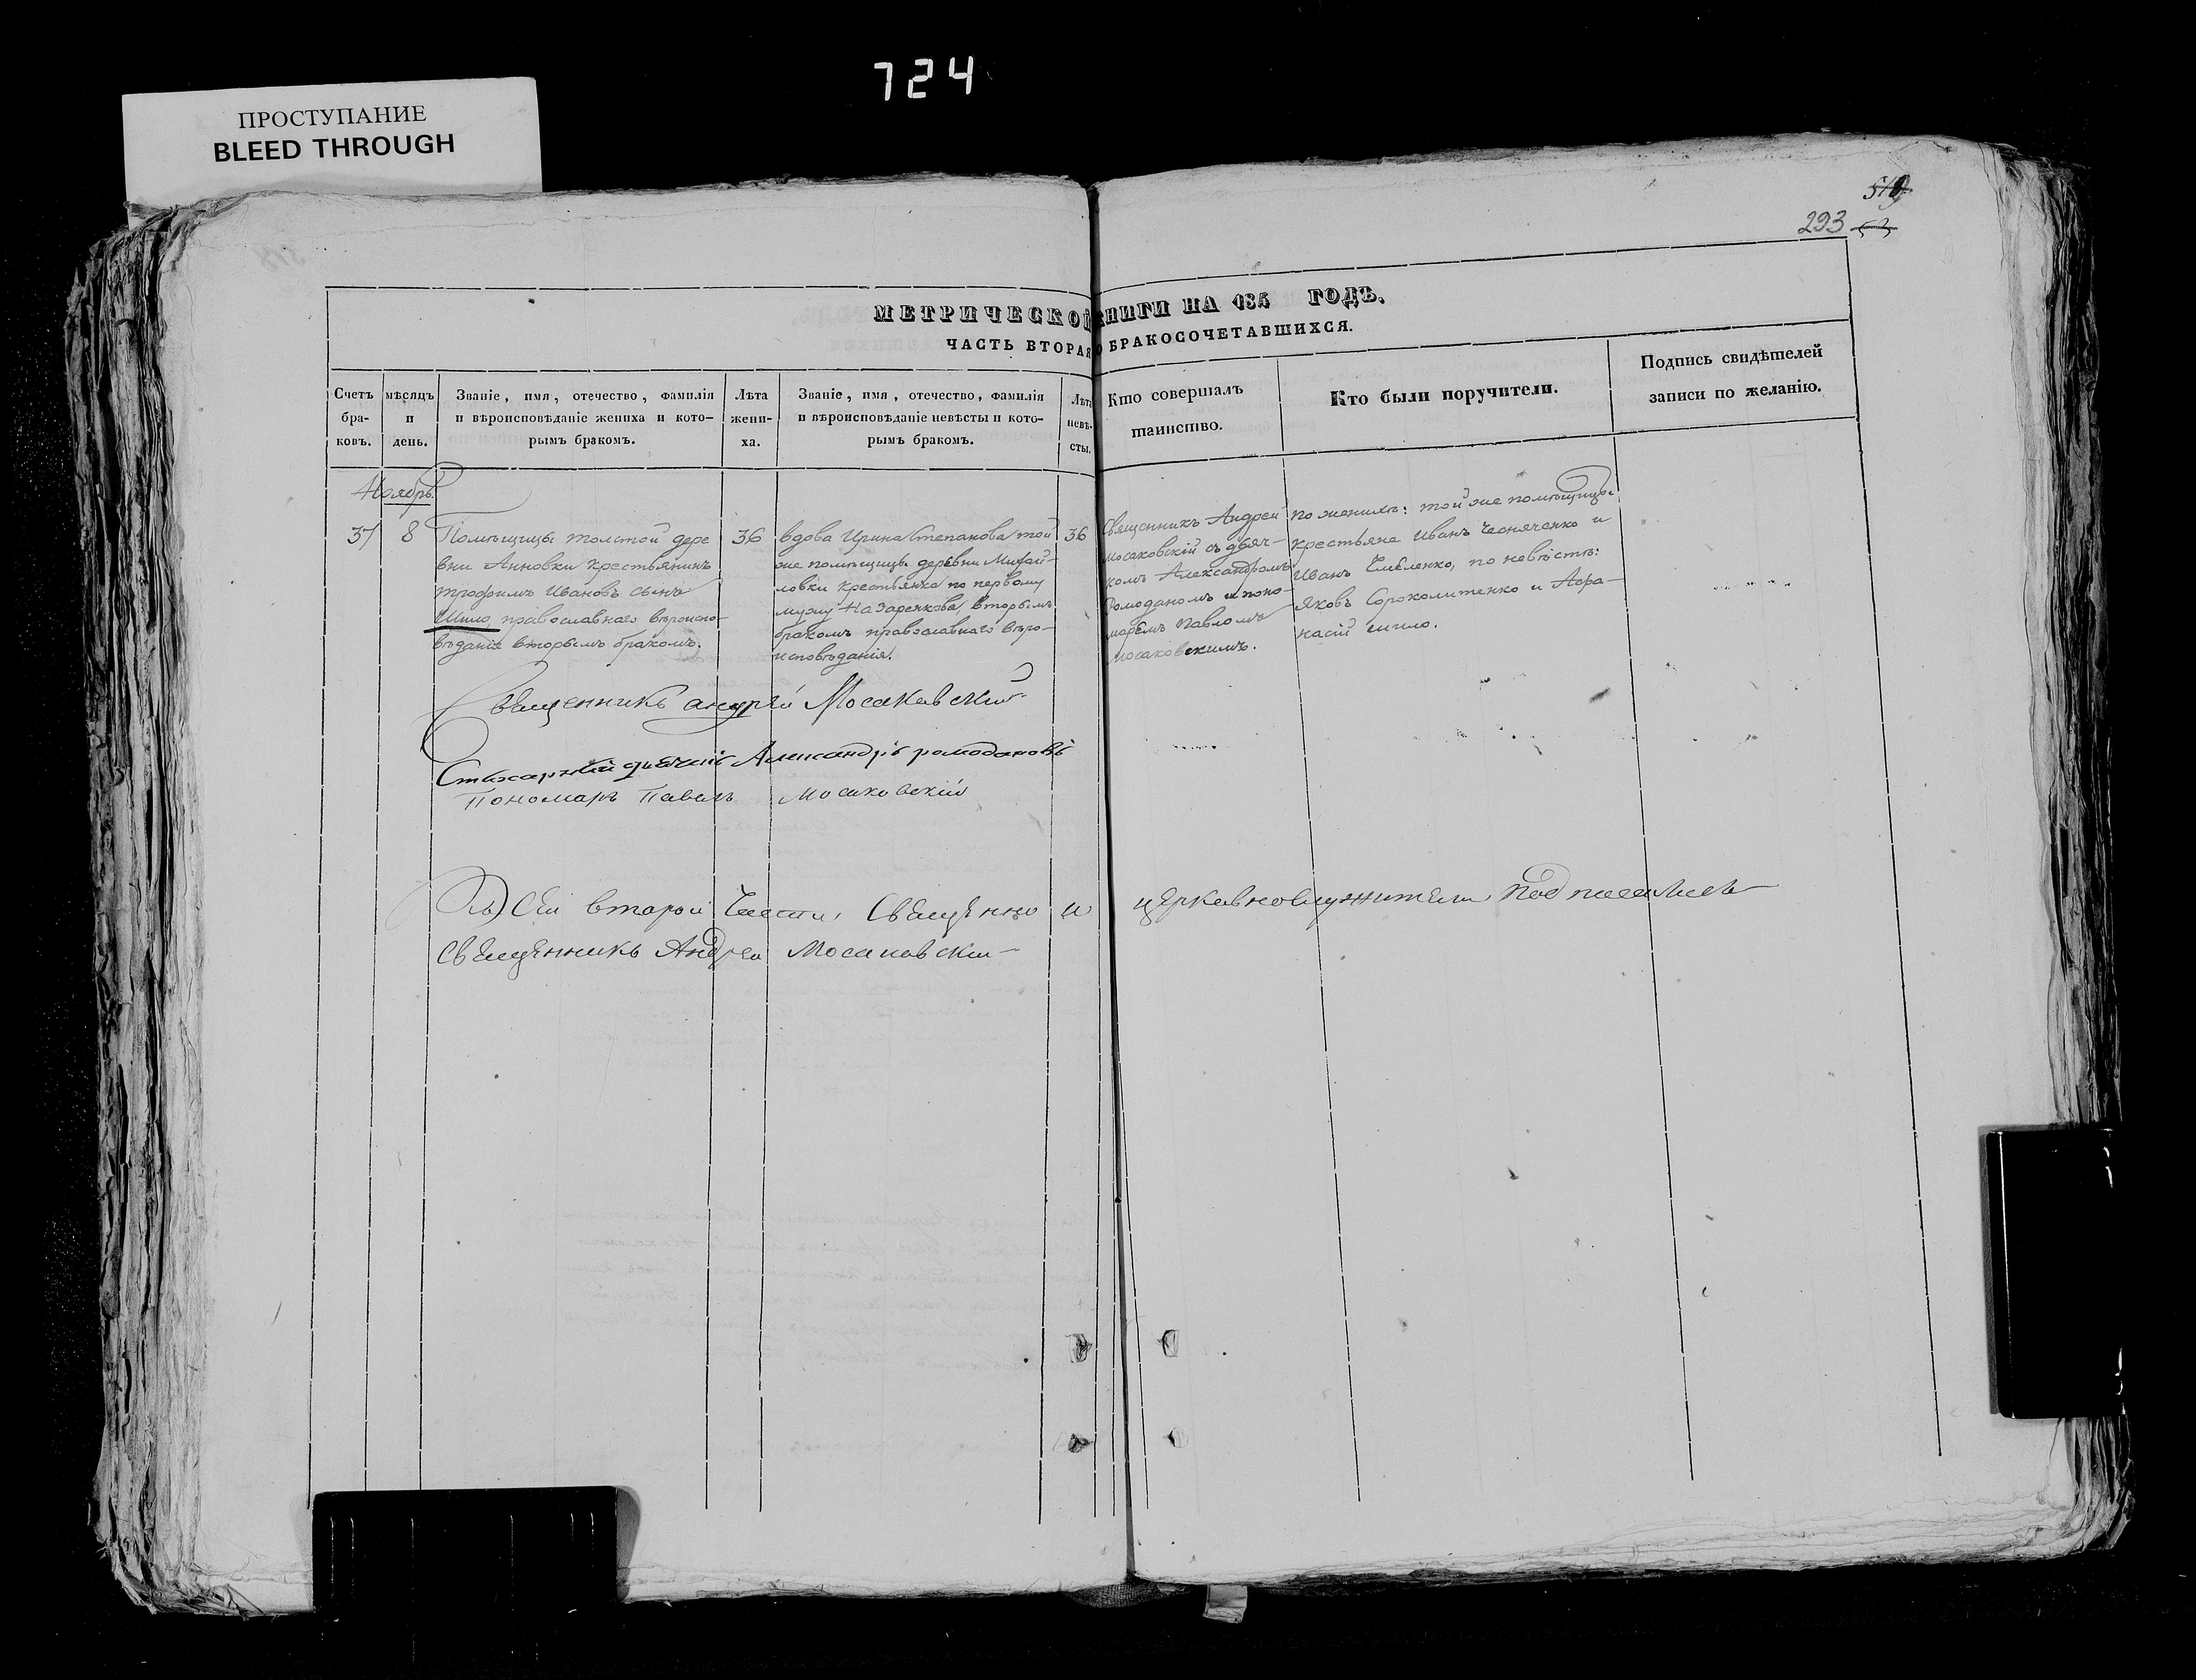 724
ПРОСТУПАНИЕ
BLEED THROUGH
519
293
МЕТРИЧЕСКОЙ КНИГИ НА 185 ГОДЪ.
ЧАСТЬ ВТОРАЯ О БРАКОСОЧЕТАВШИХСЯ.
Счетъ бра-ковъ.
мѣсяцъ и день.
Званіе, имя, отечество, фамилія и вѣроисповѣданіе жениха и кото-рымъ бракомъ.
Лѣта жени-ха.
Званіе, имя, отечество, фамилія и вѣроисповѣданіе невѣсты и кото-рымъ бракомъ.
Лѣта невѣ-сты.
Кто совершалъ таинство.
Кто были поручители.
Подпись свидѣтелей записи по желанію.
Ноябрь.
37
8
Помѣщицы толстой дере
вни Анновки крестьянинъ
трофимъ Ивановъ сынъ
Шило, православнаго вѣроиспо-
вѣданія вторымъ бракомъ.
36
вдова Ирина Степанова той
же помѣщицы деревни Михай-
ловки крестьянка по первому
мужу Назаренкова, вторымъ
бракомъ православнаго вѣро-
исповѣданія.
36
Священникъ Андрей
Мосаковскій съ дьяч-
комъ Александромъ
Ромоданомъ и поно-
маремъ Павломъ
Мосаковскимъ.
по женихѣ: той же помѣщицы
крестьяне Иванъ Чесняченко и
Иванъ Емѣленко, по невѣстѣ:
Яковъ Сороколитенко и Афа-
насій Шило.
Священникъ андрей Мосаковский
Стихарный дьячекъ Александръ ромодановъ
Пономарь Павелъ Мосаковскій
Къ Сей второй Части, Священно и церковнослужители Подписались
Священникъ Андрей Мосаковски